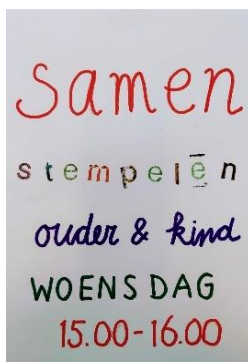 samen
stempelēn
ouder & kind
WOENSDAG
15.00-16.00